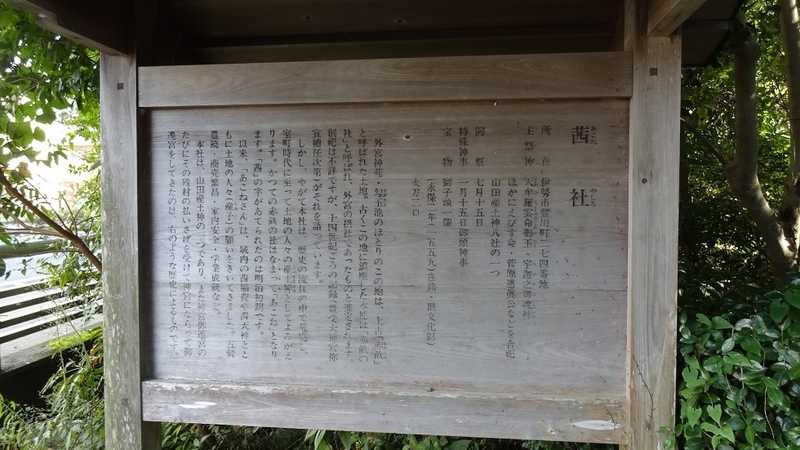 茜社
あこね やしろ
所 在 伊勢市豊川町二七四番地
主祭神 天牟羅雲命御玉・宇迦之御魂神
ほかにえびす命・菅原道真公などを合祀
山田産土神八社の一つ
例 祭 七月十五日
特殊神事 一月十五日御頭神事
宝 物 獅子頭一面
(永保二年(一五五九)在銘・県文化財)
太刀二口
外宮神苑・勾玉池のほとりのこの地は、上古「赤畝」
と呼ばれた土地。古くこの地に鎮座した本社は「赤畝の
社」と呼ばれ、外宮の摂社であったものと推定されます。
創祀は不詳ですが、十四世紀ごろの記録(豊受大神宮祢
宜補任次第)がそれを語っています。
しかし、やがて本社は、歴史の流れの中で荒廃し、
室町時代に至って土地の人々の産土神としてよみがえ
ります。かつての赤畝の社はなまって「あこね」となり
ます。「茜」の字があてられたのは明治初期です。
以来、「あこねさん」は、域内の茜稲荷・茜天神とと
もに土地の人々(産子)の願いをきいてきました。五穀
豊穣・商売繁昌・家内安全・学業成就など。
本社は、山田産土神の一つであり、また神宮御遷宮の
たびにその残材の払いさげを受けて、神宮にならって御
遷宮をしてきたのは、右のような歴史によるものです。